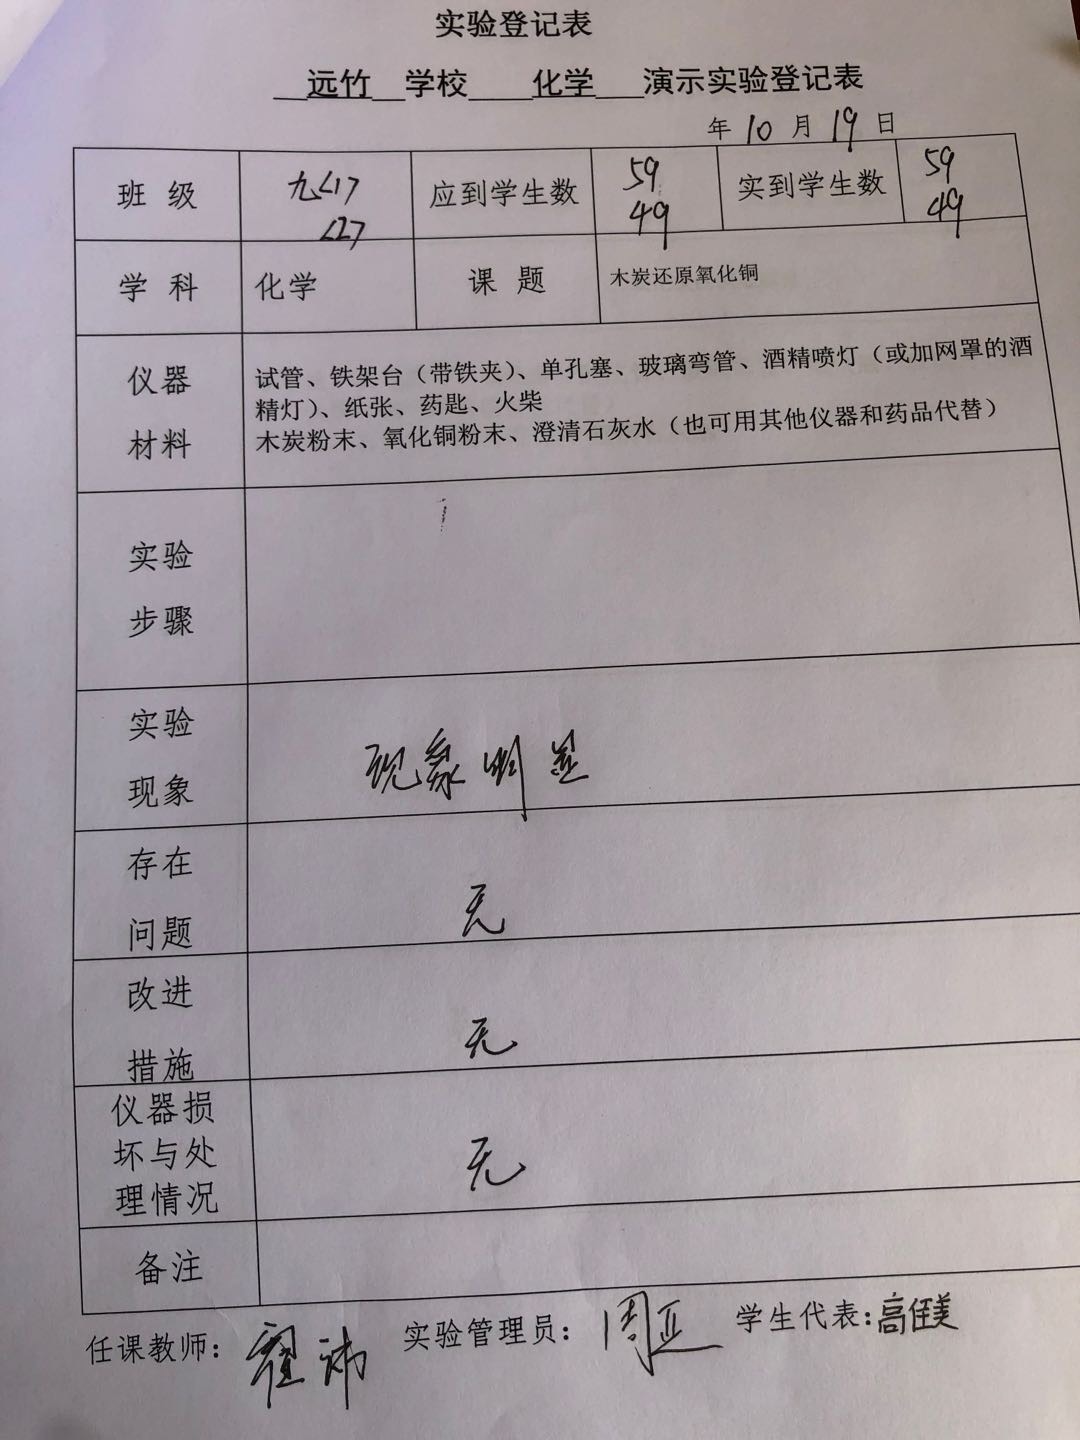 实验登记表
远竹 学校 化学 演示实验登记表
年 10 月 19 日
班 级 九<1> 应到学生数 59 实到学生数 59
<2> 49 49
学 科 化学 课 题 木炭还原氧化铜
仪器
材料
试管、铁架台（带铁夹）、单孔塞、玻璃弯管、酒精喷灯（或加网罩的酒
精灯）、纸张、药匙、火柴
木炭粉末、氧化铜粉末、澄清石灰水（也可用其他仪器和药品代替）
实验
步骤
实验
现象
现象明显
存在
问题
无
改进
措施
无
仪器损
坏与处
理情况
无
备注
任课教师： 实验管理员：周正 学生代表:高佳美